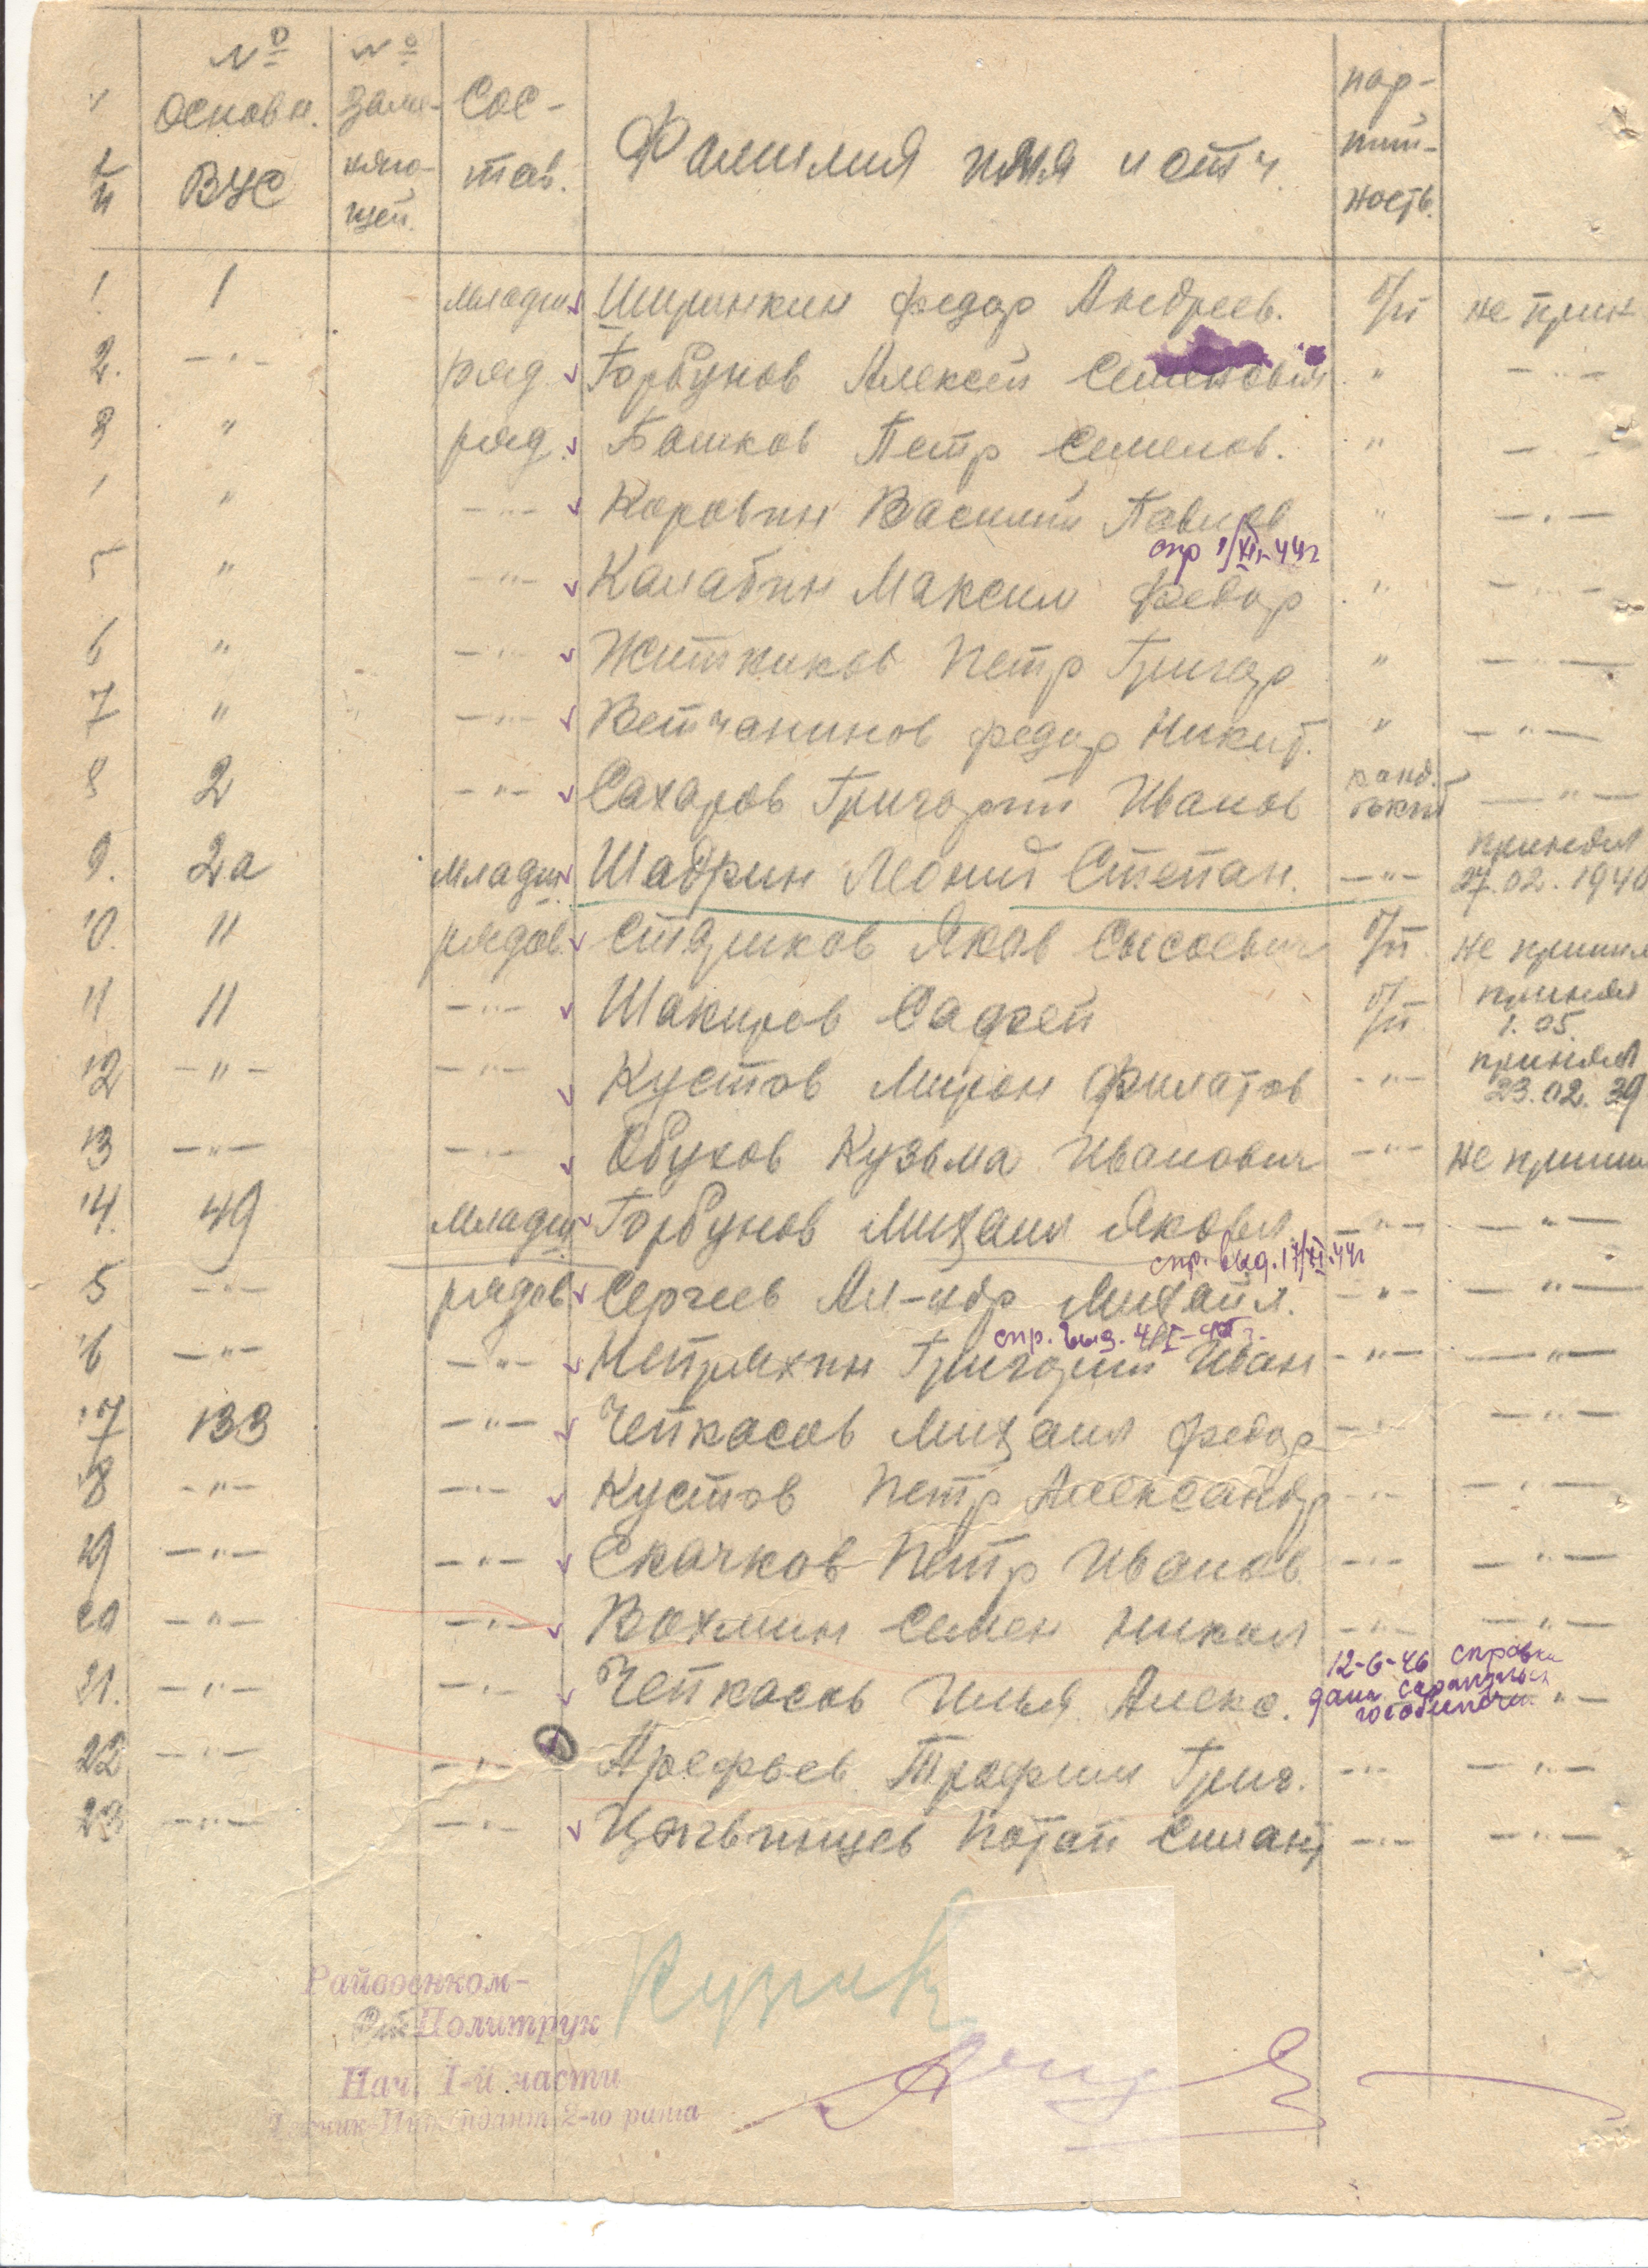 № п/п № Основн. ВУС № Заме- няю- щей. Сос- тав. Фамилия имя и отч. пар- тий- ность.
1 1 младш. Ширинкин Федор Андреев. б/п не прин
2. —"— ряд. Горбунов Алексей Семенович " —"—
3 " ряд. Башков Петр Семенов. " —"—
" —"— Коровин Василий Павлов " —"—
спр 1/XII-44г
5 " —"— Калабин Максим Федор " —"—
6 " —"— Житников Петр Григор " —"—
7 " —"— Ветчанинов Федор Никит. " —"—
8 2 —"— Сахаров Григорий Иванов канд. —"—
9. 2а младш. Шадрин Леонид Степан. —"— принял 27.02.1940
10. 11 рядов. Яков Сысоевич б/п не принял
11 11 —"— Шакиров б/п принял 1.05.
12 —"— —"— Кустов Мирон Филатов —"— принял 23.02.39
13 —"— —"— Обухов Кузьма Иванович —"— не прини
14. 49 младш. Горбунов Михаил Яковл. —"— —"—
спр. выд. 17/XI-44г
15 —"— рядов Сергеев Ал-ндр Михайл. —"— —"—
спр. выд.
16 —"— —"— Непряхин Григорий Иван —"— —"—
17 133 —"— Чепкасов Михаил Федор —"— —"—
18 —"— —"— Кустов Петр Александр —"— —"—
19 —"— —"— Скачков Петр Иванов —"— —"—
20 —"— —"— Вахмин Семен Никол —"— —"—
12-6-46 справка
21. —"— —"— Чепкасов Илья Алекс. дана —"—
22 —"— —"— Арефьев Трофим Григ. —"— —"—
23 —"— —"— Потап Силант —"— —"—
Райвоенком-
Политрук
Нач. 1-й части
2-го ранга